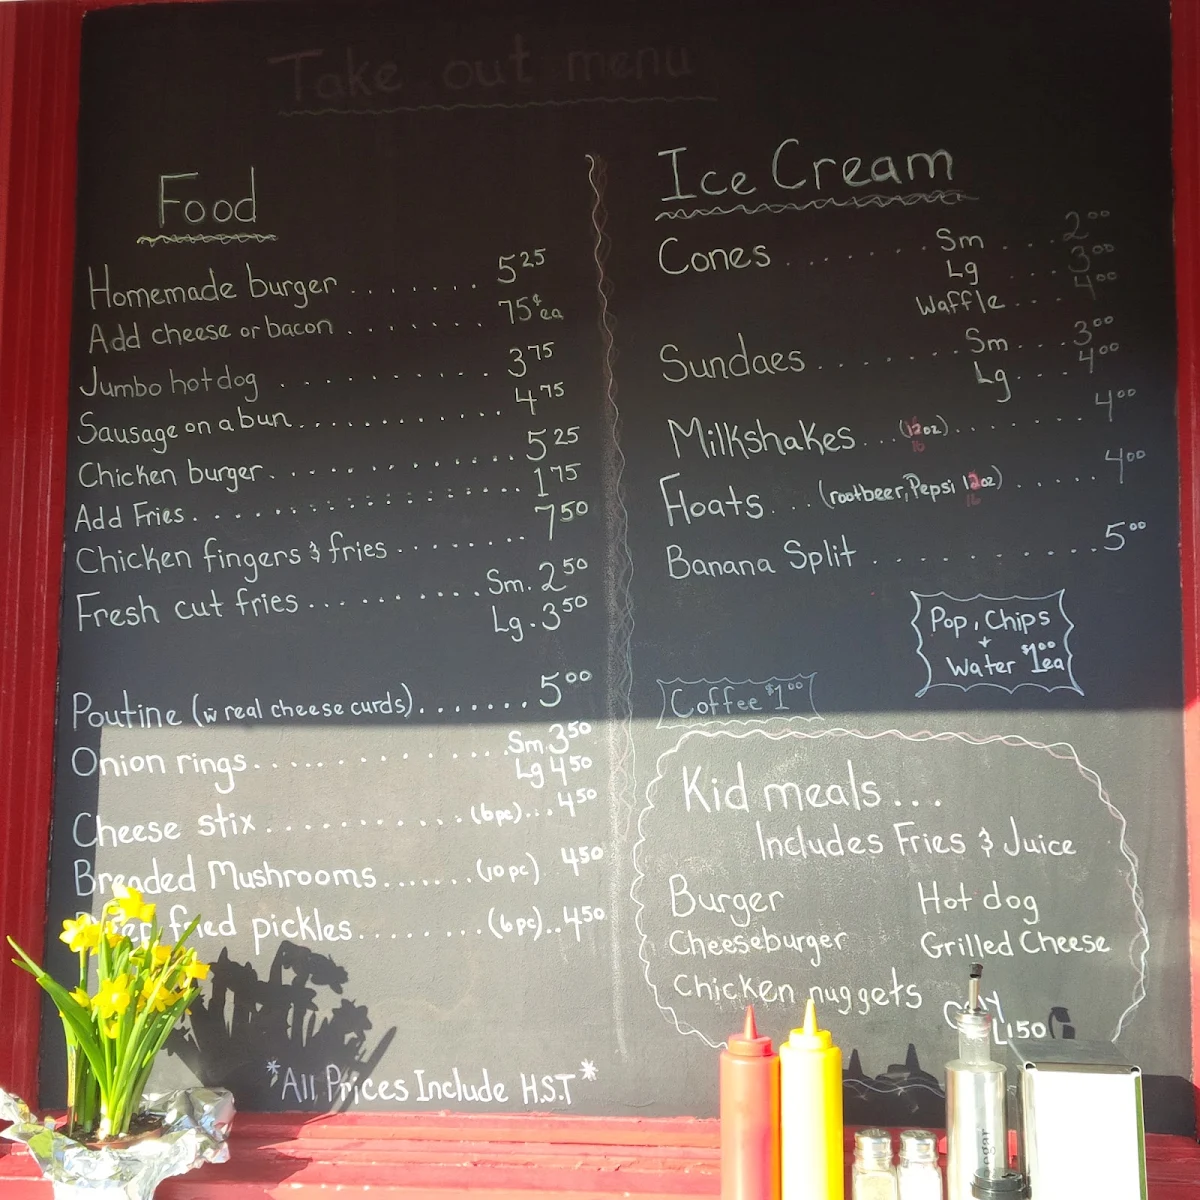 Take out menu
Food
Homemade burger ........ 5 25
Add cheese or bacon ....... 75¢ ea
Jumbo hot dog ........... 3 75
Sausage on a bun........... 4 75
Chicken burger ............. 5 25
Add Fries ................ 1 75
Chicken fingers & fries ........ 7 50
Fresh cut fries ......... Sm. 2 50
Lg. 3 50
Poutine (w real cheese curds)....... 5 00
Onion rings............ Sm 3 50
Lg 4 50
Cheese stix............ (6pc)... 4 50
Breaded Mushrooms....... (10 pc). 4 50
Deep fried pickles......... (6pc).. 4 50
*All Prices Include H.S.T*
Ice Cream
Cones ....... Sm ... 2 00
Lg .... 3 00
Waffle ... 4 00
Sundaes ....... Sm ... 3 00
Lg .... 4 00
Milkshakes ... (oz) ....... 4 00
Floats ... (rootbeer, Pepsi oz) ..... 4 00
Banana Split ........... 5 00
Pop, Chips
+
Water $1 00 ea
Coffee $1 00
Kid meals...
Includes Fries & Juice
Burger Hot dog
Cheeseburger Grilled Cheese
Chicken nuggets